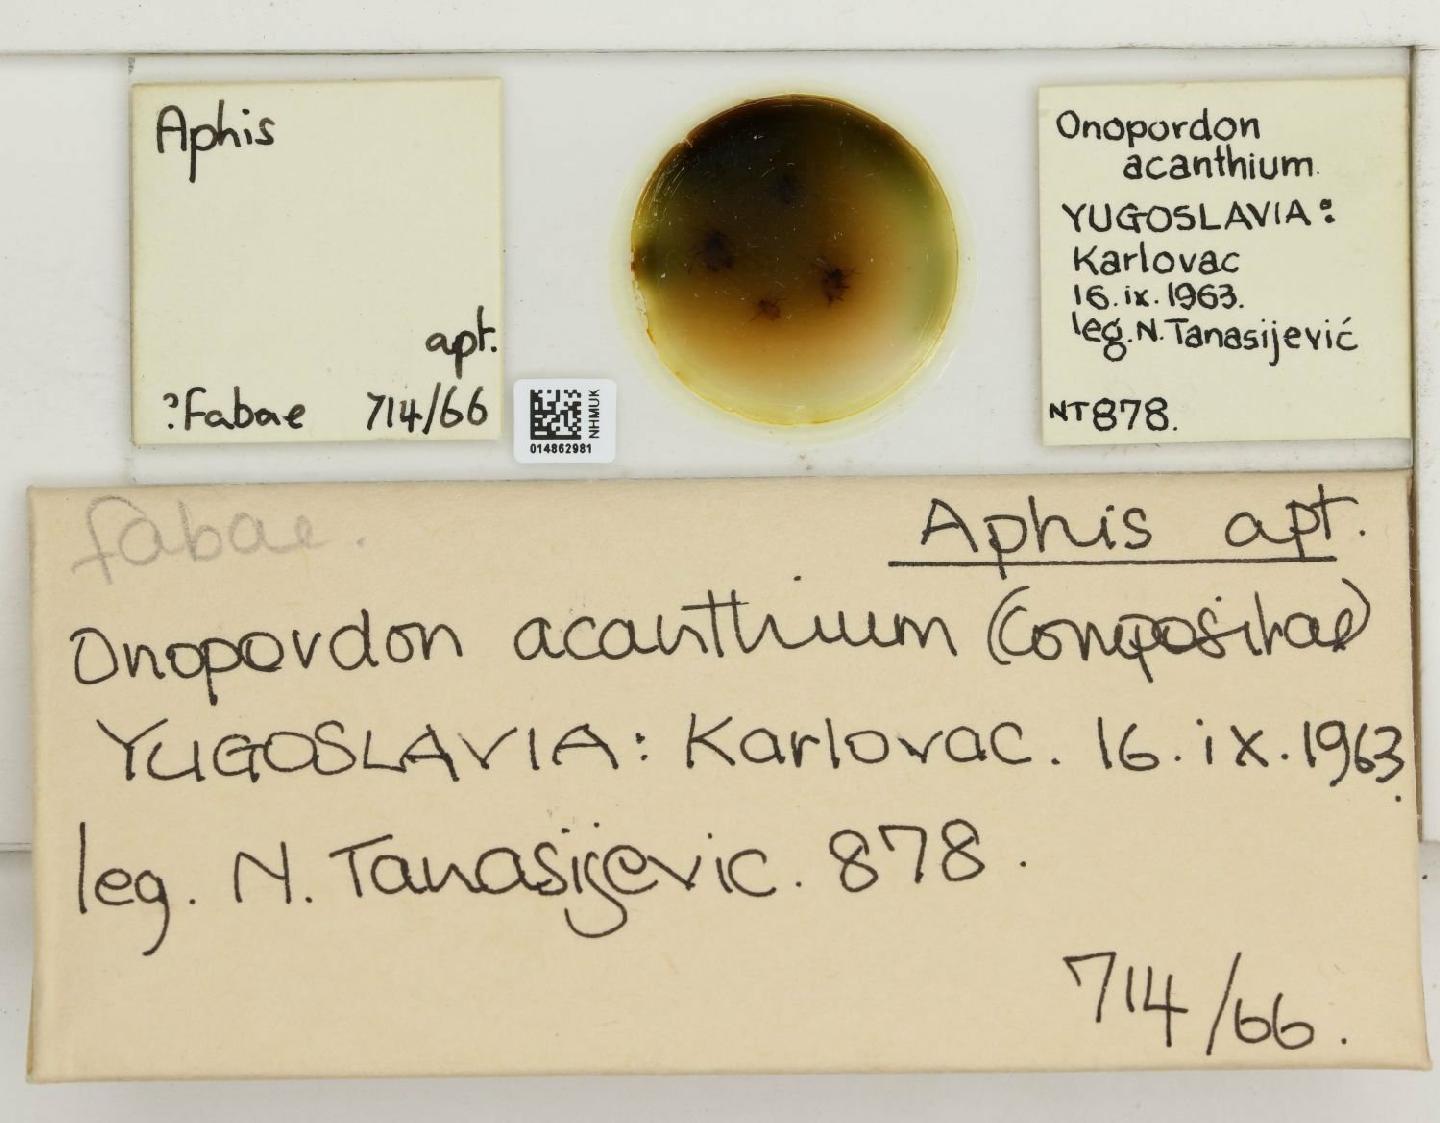 Aphis
apt.
?Fabae 714/66
NHMUK
014862981
Onopordon
acanthium
YUGOSLAVIA:
Karlovac
16.ix.1963.
leg. N. Tanasijević
NT 878.
fabae.
Aphis apt.
Onopordon acanthium (Compositae)
YUGOSLAVIA: Karlovac. 16.ix.1963.
leg. N. Tanasijevic. 878.
714/66.